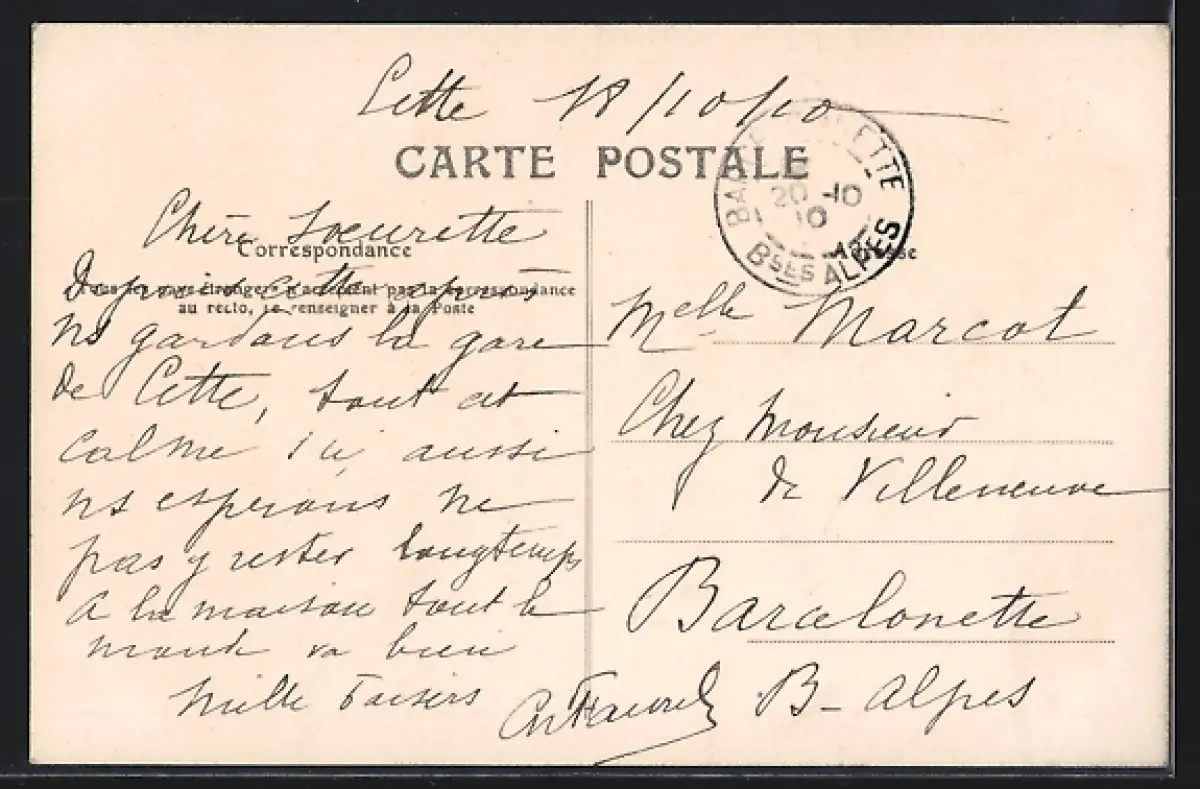 Cette 18/10/10
CARTE POSTALE
BARCELONNETTE
20-10
10
Bses ALPES
Chère Soeurette
Correspondance
Tous les pays étrangers n'acceptent pas la correspondance
au recto, se renseigner à la Poste
Depuis cette après
ns gardons la gare
de Cette, tout est
calme ici, aussi
ns esperons ne
pas y rester longtemps
A la maison tout le
monde va bien
Mille baisers
Adresse
Melle Marcot
Chez Monsieur
de Villeneuve
Barcelonette
B- Alpes